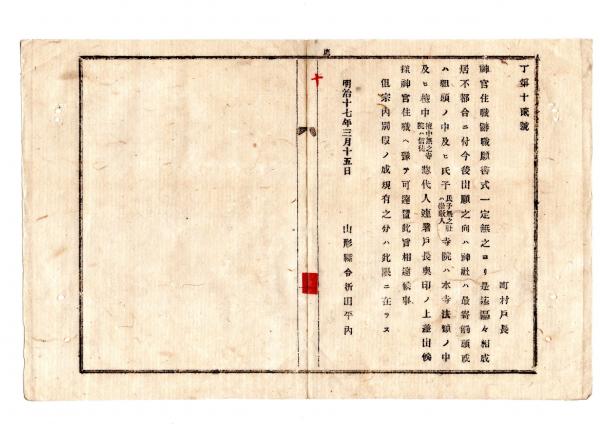 丁第十貳號
町村戸長
神官住職辭職願書式一定無之ヨリ是迄區々相成
居不都合ニ付今後出願之向ハ神社ハ最寄觸頭或
ハ組頭ノ中及ヒ氏子氏子無之社ハ崇敬人寺院ハ本寺法類ノ中
及ヒ檀中檀中無之寺院ハ信徒惣代人連署戸長奧印ノ上差出候
樣神官住職ヘ可達置此旨相達候事
但宗内別段ノ成規有之分ハ此限ニ在ラス
明治十七年三月十五日
山形縣令折田平内